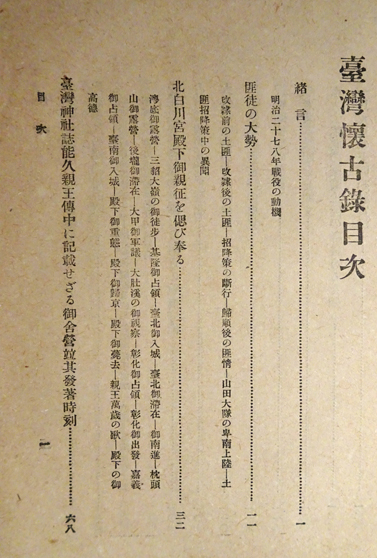 臺灣懷古錄目次
緒言…………一
明治二十七八年戰役の動機
匪徒の大勢…………一一
改隷前の土匪―改隷後の土匪―招降策の斷行―歸順後の匪情―山田大隊の卑南上陸―土
匪招降策中の異聞
北白川宮殿下御親征を偲び奉る…………三二
澳底御露營―三貂大嶺の御徒步―基隆御占領―臺北御入城―臺北御滯在―御南進―枕頭
山御露營―後壠御滯在―大甲御軍議―大肚溪の御視察―彰化御占領―彰化御出發―嘉義
御占領―臺南御入城―殿下御重態―殿下御歸京―殿下御薨去―親王萬歲の歐―殿下の御
高德
臺灣神社誌能久親王傳中に記載せざる御舍營並其發著時刻…………六八
目次 一